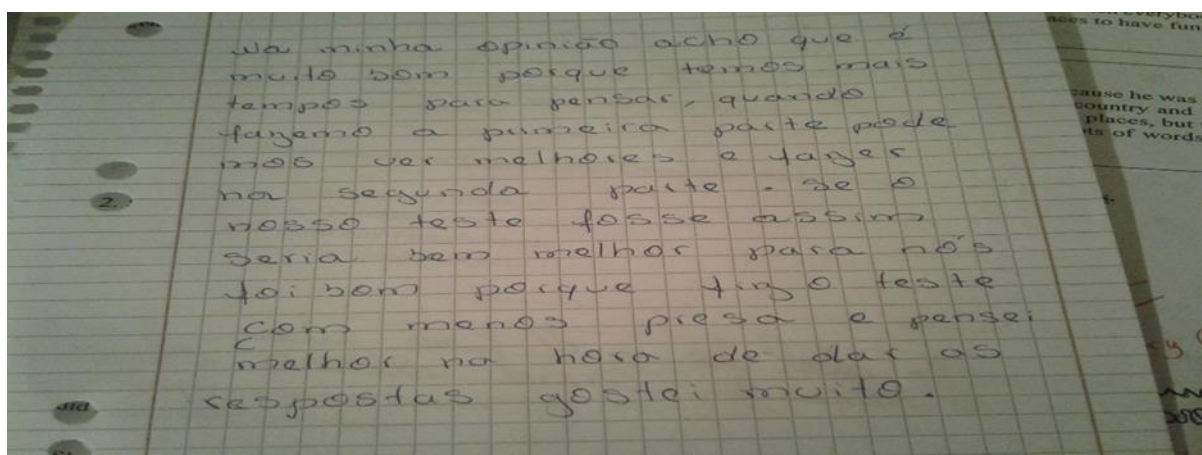 Na minha opinião acho que é
muito bom porque temos mais
tempos para pensar, quando
fazemo a primeira parte pode
mos ver melhores e fazer
na segunda parte. Se o
nosso teste fosse assim
seria bem melhor para nós
foi bom porque fiz o teste
com menos presa e pensei
melhor na hora de dar as
respostas gostei muito.
2.)
everybod
aces to have fun
ause he was
country and
places, but
ts of words